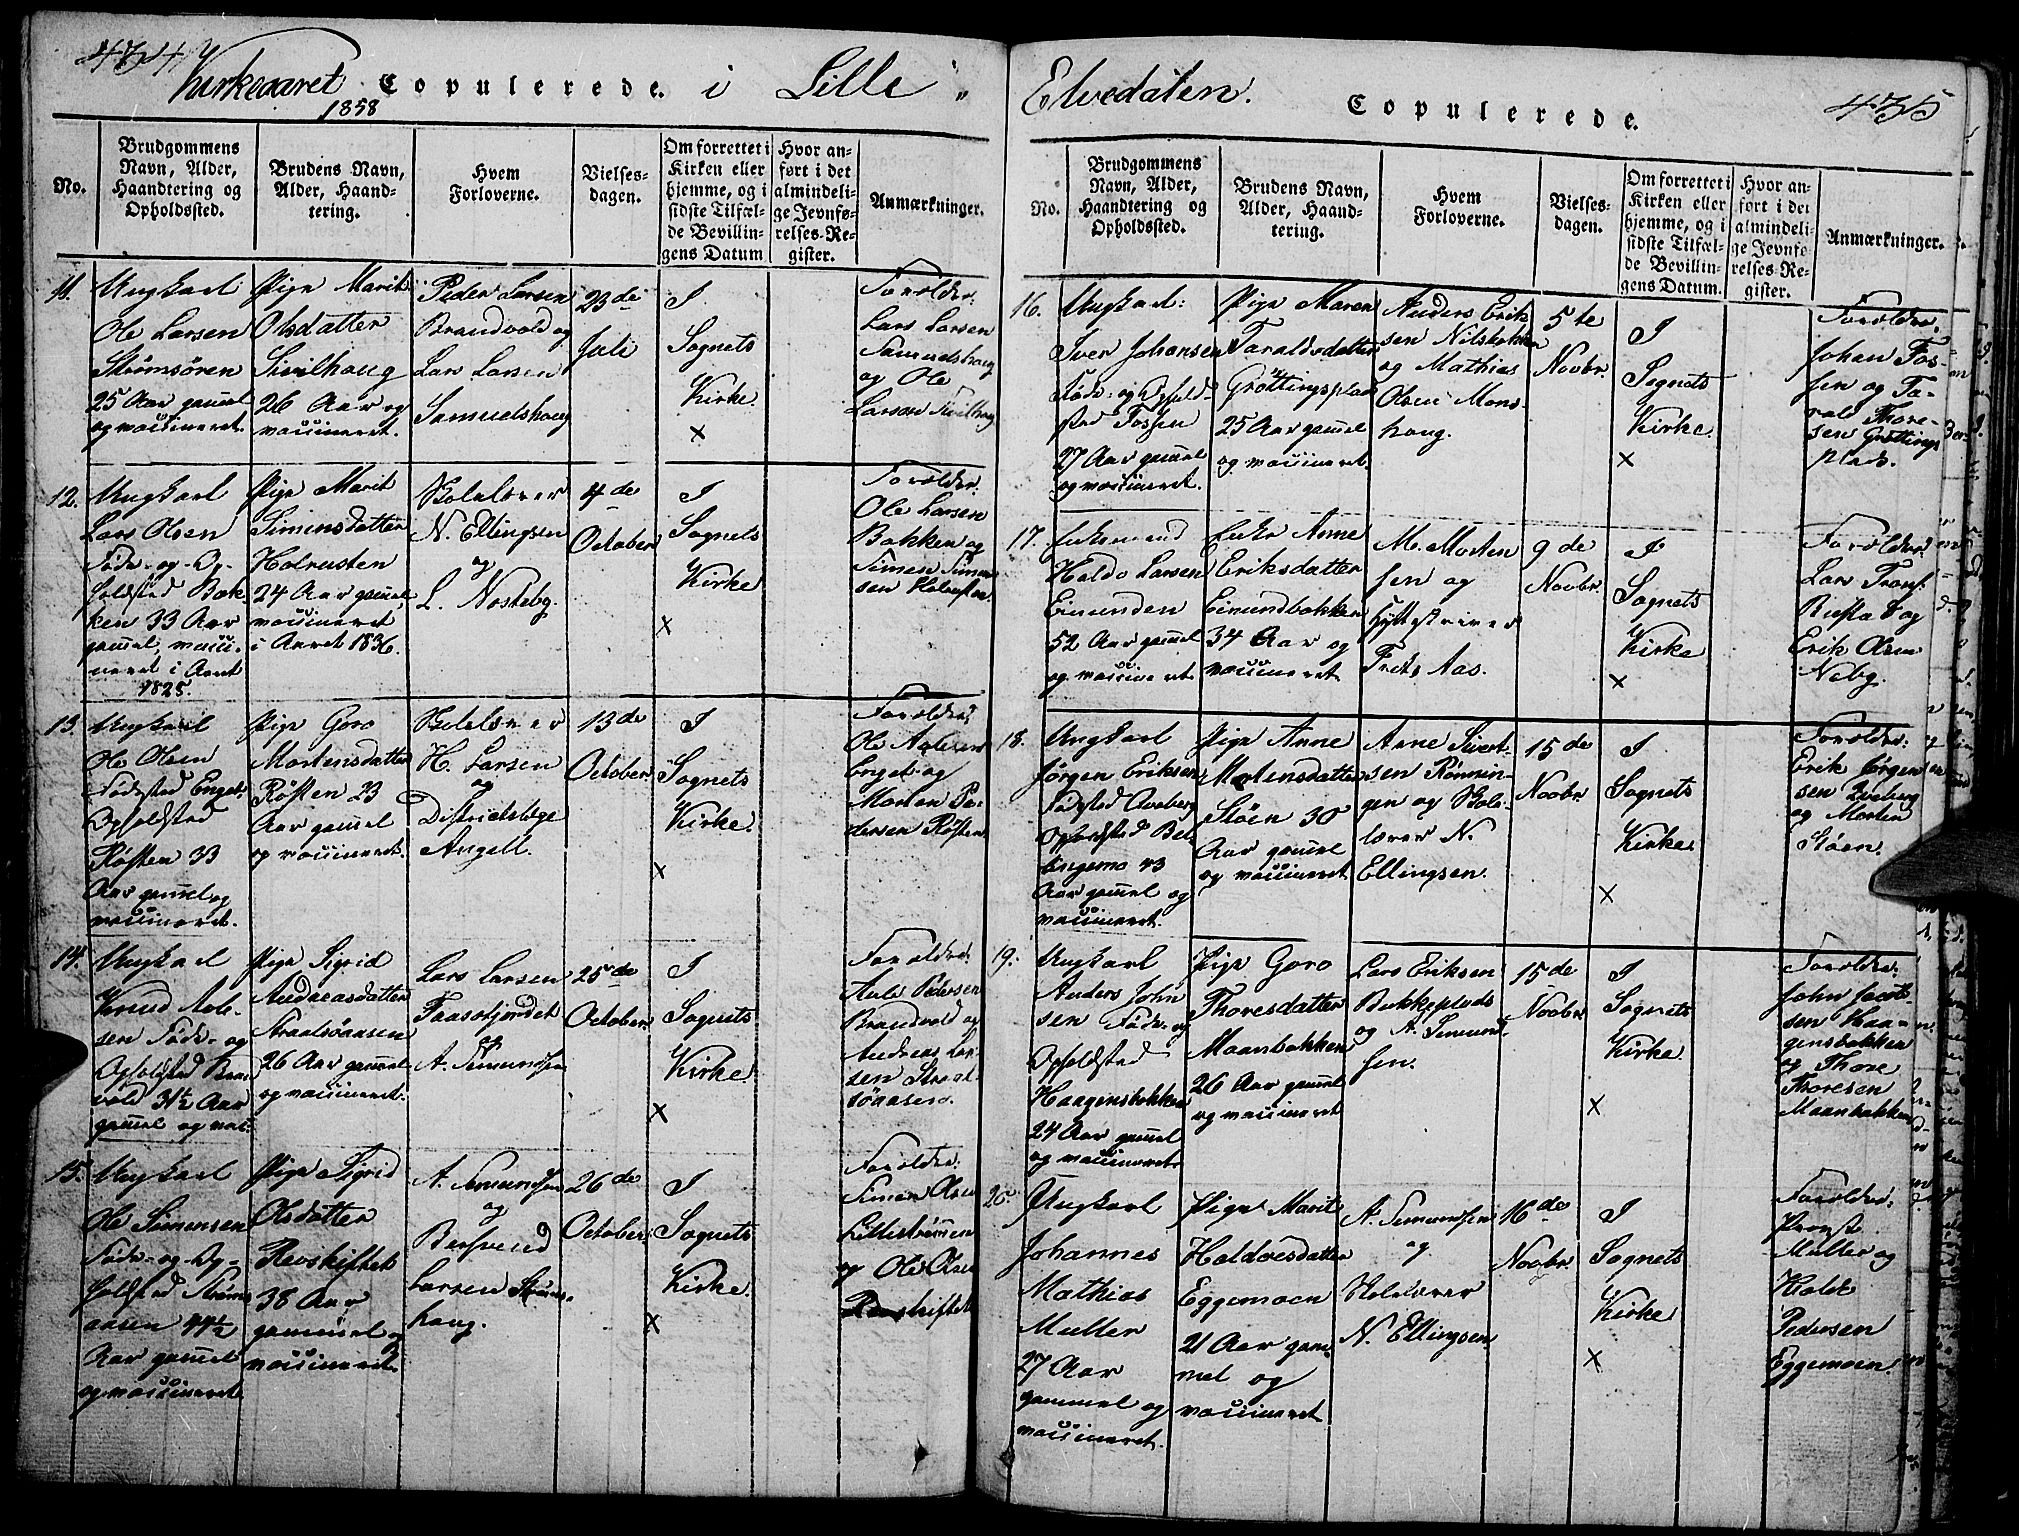 434
Kirkeaaret Copulerede. i Lille
1858
No.
Brudgommens Navn, Alder, Haandtering og Opholdssted.
Brudens Navn, Alder, Haandtering.
Hvem Forloverne.
Vielsesdagen.
Om forrettet i Kirken eller hjemme, og i sidste Tilfælde Bevillingens Datum
Hvor anført i det almindelige Jevnførelses-Register.
Anmærkninger.
11.
Ungkarl
Ole Larsen
Strømsören
25 Aar gamel
og vaccineret.
Pige Marit
Olsdatter
Sivilhaug
26 Aar og
vaccineret.
Peder Larsen
Brandvold og
Lars Larsen
Samuelshaug
23de
Juli
I
Sognets
Kirke.
x
Forældre:
Lars Larsen
Samuelshaug
og Ole
Larsen Sivilhaug
12.
Ungkarl
Lars Olsen
Føde- og Op-
holdssted Bak-
ken 33 Aar
gamel, vacci-
neret i Aaret
1825.
Pige Marit
Simensdatter
Holrusten
24 Aar gamel,
vaccineret
i Aaret 1836.
Skolelærer
N. Ellingsen
og
L. Nosteby.
4de
October
I
Sognets
Kirke
x
Forældre:
Ole Larsen
Bakken og
Simen Simen-
sen Holrusten.
13.
Ungkarl
Ole Olsen
Fødested Enget,
Opholdsted
Røsten 33
Aar gamel og
vaccineret.
Pige Goro
Mortensdatter
Røsten 23
Aar gamel
og vaccineret.
Skolelærer
H. Larsen
og
Districtslæge
Angell.
13de
October
I
Sognets
Kirke.
x
Forældre:
Enget og
Morten Pe-
dersen Røsten.
14.
Ungkarl
Knud Aole-
sen Føde- og
Opholdsted Bran-
vold 31½ Aar
gamel og vac.
Pige Sigrid
Andreasdatter
Straalsöaasen
26 Aar gamel
og vaccineret.
Lars Larsen
Faasofjordet
og
A. Simundsen
25de
October
I
Sognets
Kirke.
x
Forældre:
Pedersen
Brandvold og
Andreas Lar-
sen Straal-
söaasen.
15.
Ungkarl
Ole Simensen
Føde- og Op-
holdsted Strøms-
aasen 44½
Aar gamel
og vaccineret.
Pige Sigrid
Olsdatter
Revskiftet
38 Aar
gammel og
vaccineret.
A. Simundsen
og
Bersvend
Larsen Strøms-
haug.
26de
October
I
Sognets
Kirke.
x
Forældre:
Simen Olsen
Lillestrømmen
og Ole Olsen
Revskiftet
Elvedalen. Copulerede. 435
No.
Brudgommens Navn, Alder, Haandtering og Opholdssted.
Brudens Navn, Alder, Haandtering.
Hvem Forloverne.
Vielsesdagen.
Om forrettet i Kirken eller hjemme, og i sidste Tilfælde Bevillingens Datum.
Hvor anført i det almindelige Jevnførelses-Register.
Anmærkninger.
16.
Ungkarl:
Iver Johansen
Føde- og Ophold-
sted Fossen
27 Aar gamel
og vaccineret.
Pige Maren
Taraldsdatter
Grøttingsplads
25 Aar gamel
og vaccineret
Anders Erik-
sen Nilsbakken
og Mathias
Olsen Mons-
haug.
5te
Novbr.
I
Sognets
Kirke.
x
Forældre:
Johan Fos-
sen og Ta-
rald Thore-
sen Grøttings
plads.
17.
Enkemand
Haldo Larsen
Einunden
52 Aar gamel
og vaccineret
Enke Anne
Eriksdatter
Einundbakken
34 Aar og
vaccineret
M. Morten
sen og
Hytteskriver
Fretz Aas.
9de
Novbr.
I
Sognets
Kirke
x
Forældre:
Lars
og
Erik Olsen
Neby.
18.
Ungkarl
Jørgen Eriksen
Fødested Qvæberg
Opholdsted
Engemo 43
Aar gamel og
vaccineret.
Pige Anne
Mortensdatter
Støen 30
Aar gamel
og vaccineret
Arne Sivert-
sen Rønnin-
gen og Skole-
lærer N.
Ellingsen.
15de
Novbr.
I
Sognets
Kirke.
x
Forældre:
Erik Jørgen
sen Qvæberg
og Morten
Støen.
19.
Ungkarl
Anders John
sen Føde- og
Opholdsted
Haagensbakken
24 Aar gamel
og vaccineret.
Pige Goro
Thoresdatter
Maanbakken
26 Aar gamel
og vaccineret
Lars Eriksen
Bakkeplads
og A. Simund-
sen.
15de
Novbr.
I
Sognets
Kirke
x
Forældre:
John Jacob-
sen Haa-
gensbakken
og Thore
Thoresen
Maanbakken
20.
Ungkarl
Johannes
Mathias
Muller
27 Aar
gammel og
vaccineret.
Pige Marit
Haldoesdatter
Eggemoen
21 Aar gam-
mel og
vaccineret
A. Simundsen
og
Skolelærer
N. Ellingsen.
16de
Novbr.
I
Sognets
Kirke
x
Forældre:
Provst
Muller og
Haldo
Pedersen
Eggemoen.